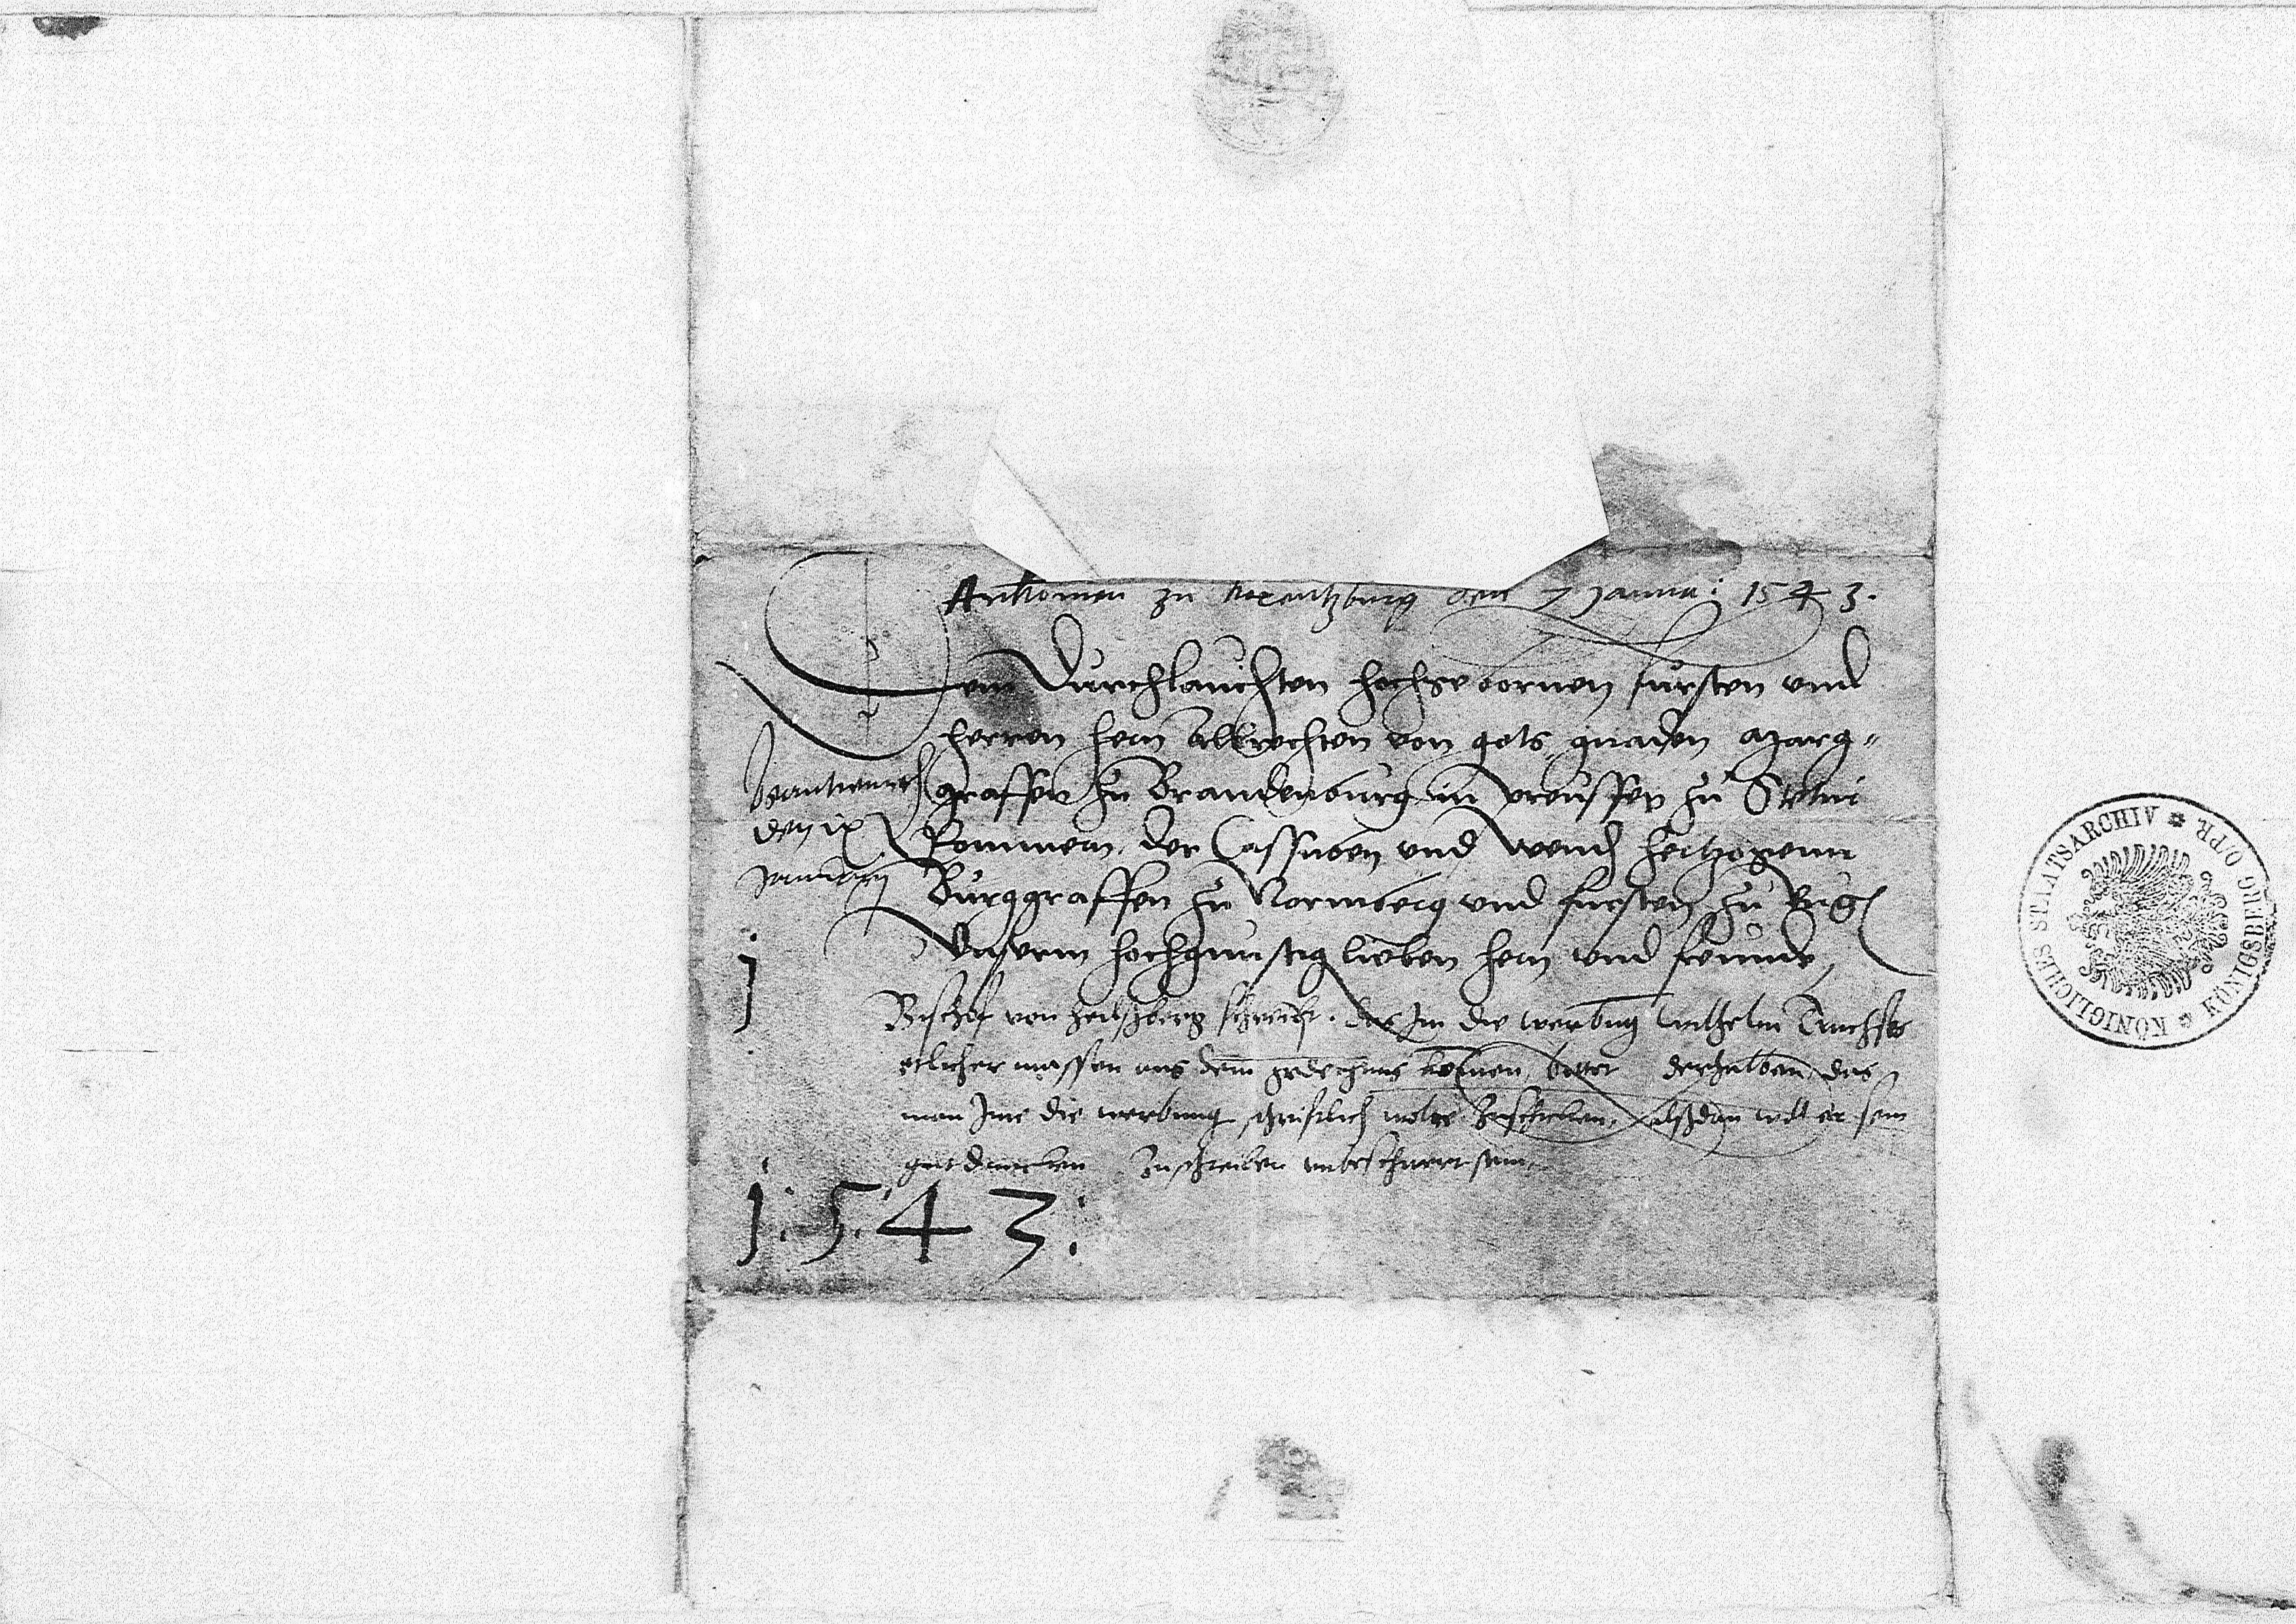 Ankomen zu kreutzburg den 7 Januarii 1543.
Dem Durchlauchten hochgebornen fursten vnd
herren hern Albrechten von gots gnaden Marg-
graffen zu Brandenburg in preussen zu Stetin
Pommern, der Cassuben vnd Wend hertzogenn
Burggraffen zu Nornberg vnd fursten zu Rug
Vnserm hochgunstig lieben hern vnd freunde,
beantwurt
den ix
Januarij
j
Bischof von heilsberg schreibt. das Im die werbung Wilhelm Truchses
etlicher massen aus dem gedechtnus komen, bittet derhalben das
man Ime die werbung schriftlich wolte zuschicken, alsdan will er sein
gutduncken zuschreiben vnbeschwert sein.
1.5.43.
KÖNIGLICHES STAATSARCHIV * KÖNIGSBERG O/PR. *